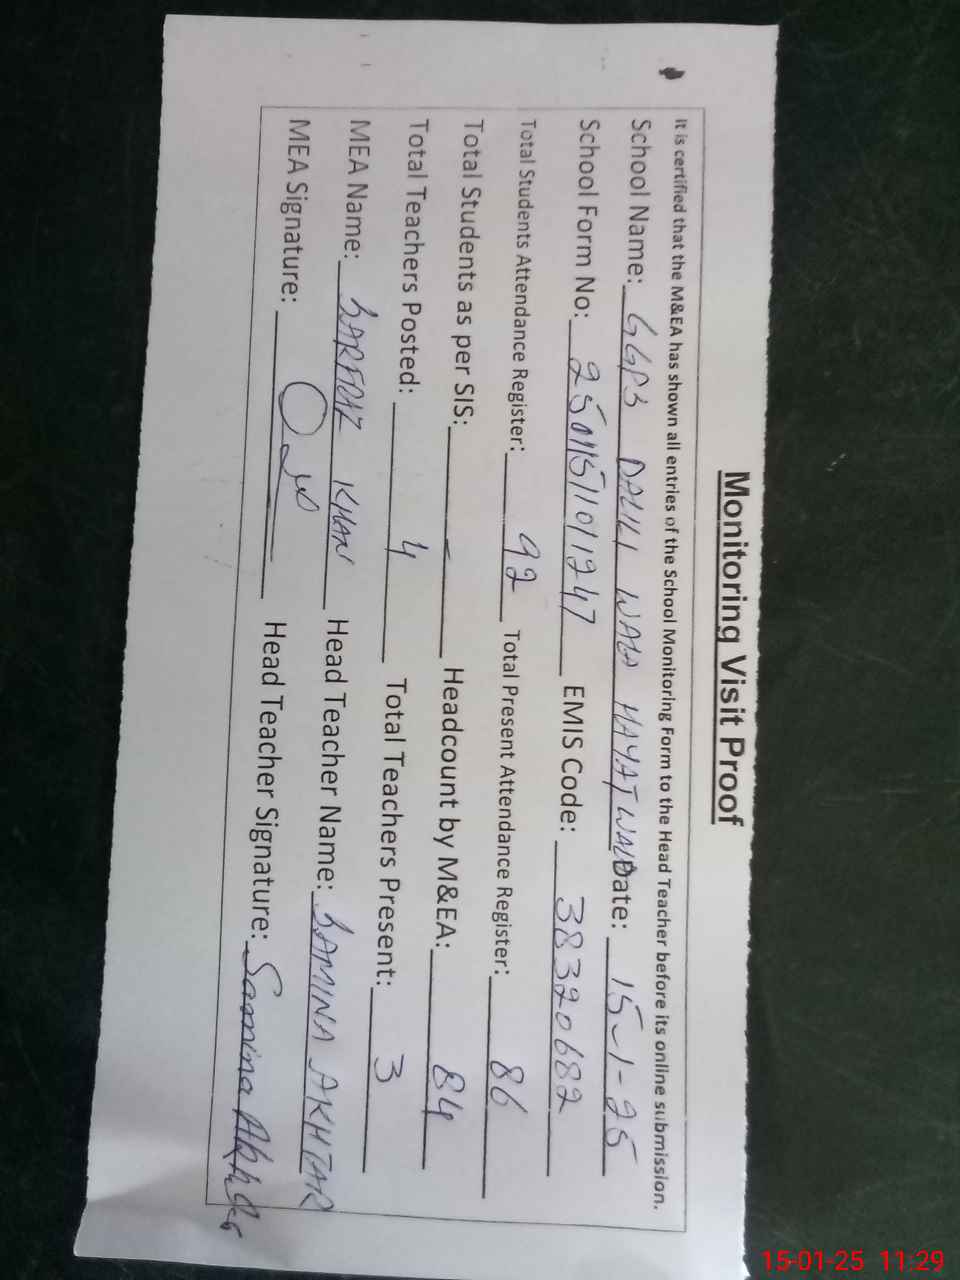 Monitoring Visit Proof
It is certified that the M&EA has shown all entries of the School Monitoring Form to the Head Teacher before its online submission.
School Name: GGPS DALILI WALA HAYAT WALA Date: 15-1-25
School Form No: 25011511011247 EMIS Code: 38320682
Total Students Attendance Register: 92 Total Present Attendance Register: 86
Total Students as per SIS: - Headcount by M&EA: 84
Total Teachers Posted: 4 Total Teachers Present: 3
MEA Name: SARFRAZ KHAN Head Teacher Name: SAMINA AKHTAR
MEA Signature: Head Teacher Signature: Samina Akhtar
15-01-25 11:29